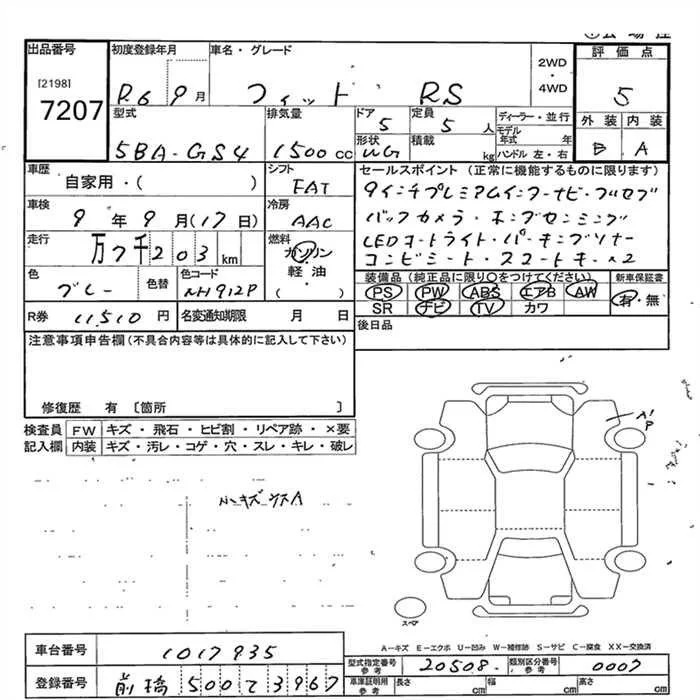 出品番号
[2198]
7207
初度登録年月
R6 9月
車名・グレード
フィット RS
2WD
・
4WD
評価点
5
外装 内装
B A
型式
5BA-GS4
排気量
1500cc
ドア
5
定員
5人
形状
WG
積載
kg
ディーラー・並行
モデル年式 年
ハンドル 左・右
車歴
自家用・( )
シフト
FAT
車検
9年9月(17日)
冷房
AAC
走行
万7千203km
燃料
ガソリン
軽油
( )
色
グレー
色替
色コード
NH912P
R券 11510円
名変通知期限 月 日
セールスポイント(正常に機能するものに限ります)
9インチプレミアムインターナビ・フルセグ
バックカメラ・ホンダセンシング
LEDオートライト・パーキングソナー
コンビシート・スマートキー×2
装備品(純正品に限り○をつけてください)
PS PW ABS エアB AW
SR ナビ TV カワ
新車保証書
有・無
後日品
注意事項申告欄(不具合内容等は具体的に記入して下さい)
修復歴 有〔箇所 〕
検査員記入欄
FW キズ・飛石・ヒビ割・リペア跡・×要
内装 キズ・汚レ・コゲ・穴・スレ・キレ・破レ
小キズ
A
A1
P
スペア
A-キズ E-エクボ U-凹み W-補修跡 S-サビ C-腐食 XX-交換済
車台番号
1017935
登録番号
前橋 500 3967
型式指定番号
参考
20508
類別区分番号
参考
0007
車庫証明用
参考
長さ cm 幅 cm 高さ cm